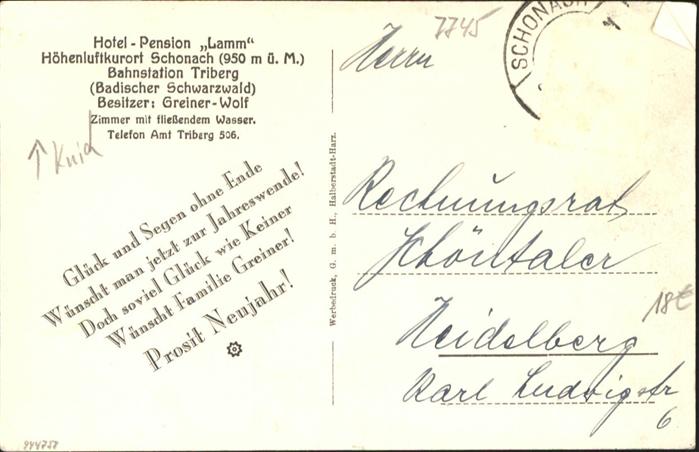 Hotel - Pension „Lamm“
Höhenluftkurort Schonach (950 m ü. M.)
Bahnstation Triberg
(Badischer Schwarzwald)
Besitzer: Greiner-Wolf
Zimmer mit fließendem Wasser.
Telefon Amt Triberg 506.
↑ Knick
Glück und Segen ohne Ende
Wünscht man jetzt zur Jahreswende!
Doch soviel Glück wie Keiner
Wünscht Familie Greiner!
Prosit Neujahr!
944757
Werbedruck, G. m. b. H., Halberstadt-Harz.
7745
SCHONACH
Herrn
Rechnungsrat
Schöntaler
Heidelberg
Karl Ludwigstr
6
18€